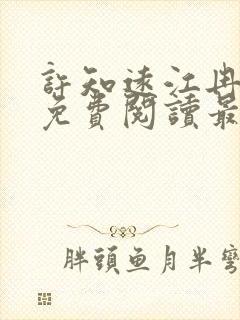 許知遠江冉
免費閱讀最
胖頭魚月半彎